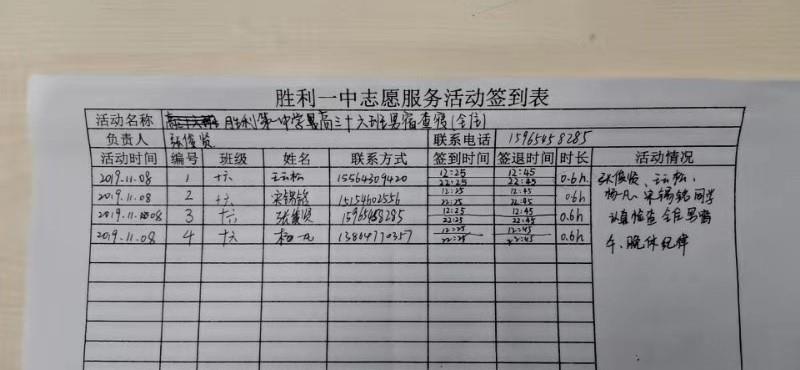 胜利一中志愿服务活动签到表
活动名称 胜利第一中学暑高三十六班男宿查宿(全周)
负责人 张俊贤 联系电话 15965458285
活动时间 编号 班级 姓名 联系方式 签到时间 签退时间 时长 活动情况
2019.11.08 1 十六 15564309420 12:25 22:25 12:45 22:45 0.6h 张俊贤、
2019.11.08 2 十六 宋锡铭 15154602556 12:25 22:25 12:45 22:45 0.6h 杨一凡、宋锡铭同学
2019.11.08 3 十六 张俊贤 15965458285 12:25 22:25 12:45 22:45 0.6h 认真检查全宿男宿
2019.11.08 4 十六 杨一凡 13864770357 12:25 22:25 12:45 22:45 0.6h 午、晚休纪律